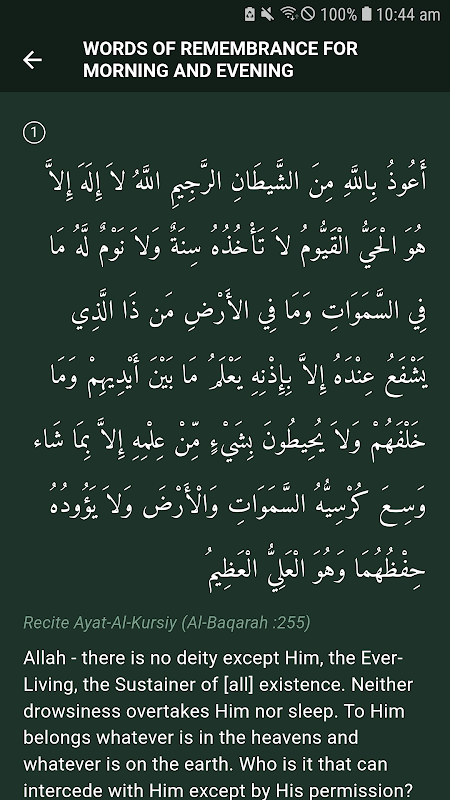 100% 10:44 am
WORDS OF REMEMBRANCE FOR
MORNING AND EVENING
1
أَعُوذُ بِاللَّهِ مِنَ الشَّيطَانِ الرَّجِيمِ اللَّهُ لاَ إِلَهَ إِلاَّ
هُوَ الْحَيُّ الْقَيُّومُ لاَ تَأْخُذُهُ سِنَةٌ وَلاَ نَوْمٌ لَّهُ مَا
فِي السَّمَوَاتِ وَمَا فِي الأَرْضِ مَن ذَا الَّذِي
يَشْفَعُ عِنْدَهُ إِلاَّ بِإِذْنِهِ يَعْلَمُ مَا بَيْنَ أَيْدِيهِمْ وَمَا
خَلْفَهُمْ وَلاَ يُحِيطُونَ بِشَيْءٍ مِّنْ عِلْمِهِ إِلاَّ بِمَا شَاء
وَسِعَ كُرْسِيُّهُ السَّمَوَاتِ وَالْأَرْضَ وَلاَ يَؤُودُهُ
حِفْظُهُمَا وَهُوَ الْعَلِيُّ الْعَظِيمُ
Recite Ayat-Al-Kursiy (Al-Baqarah :255)
Allah - there is no deity except Him, the Ever-
Living, the Sustainer of [all] existence. Neither
drowsiness overtakes Him nor sleep. To Him
belongs whatever is in the heavens and
whatever is on the earth. Who is it that can
intercede with Him except by His permission?